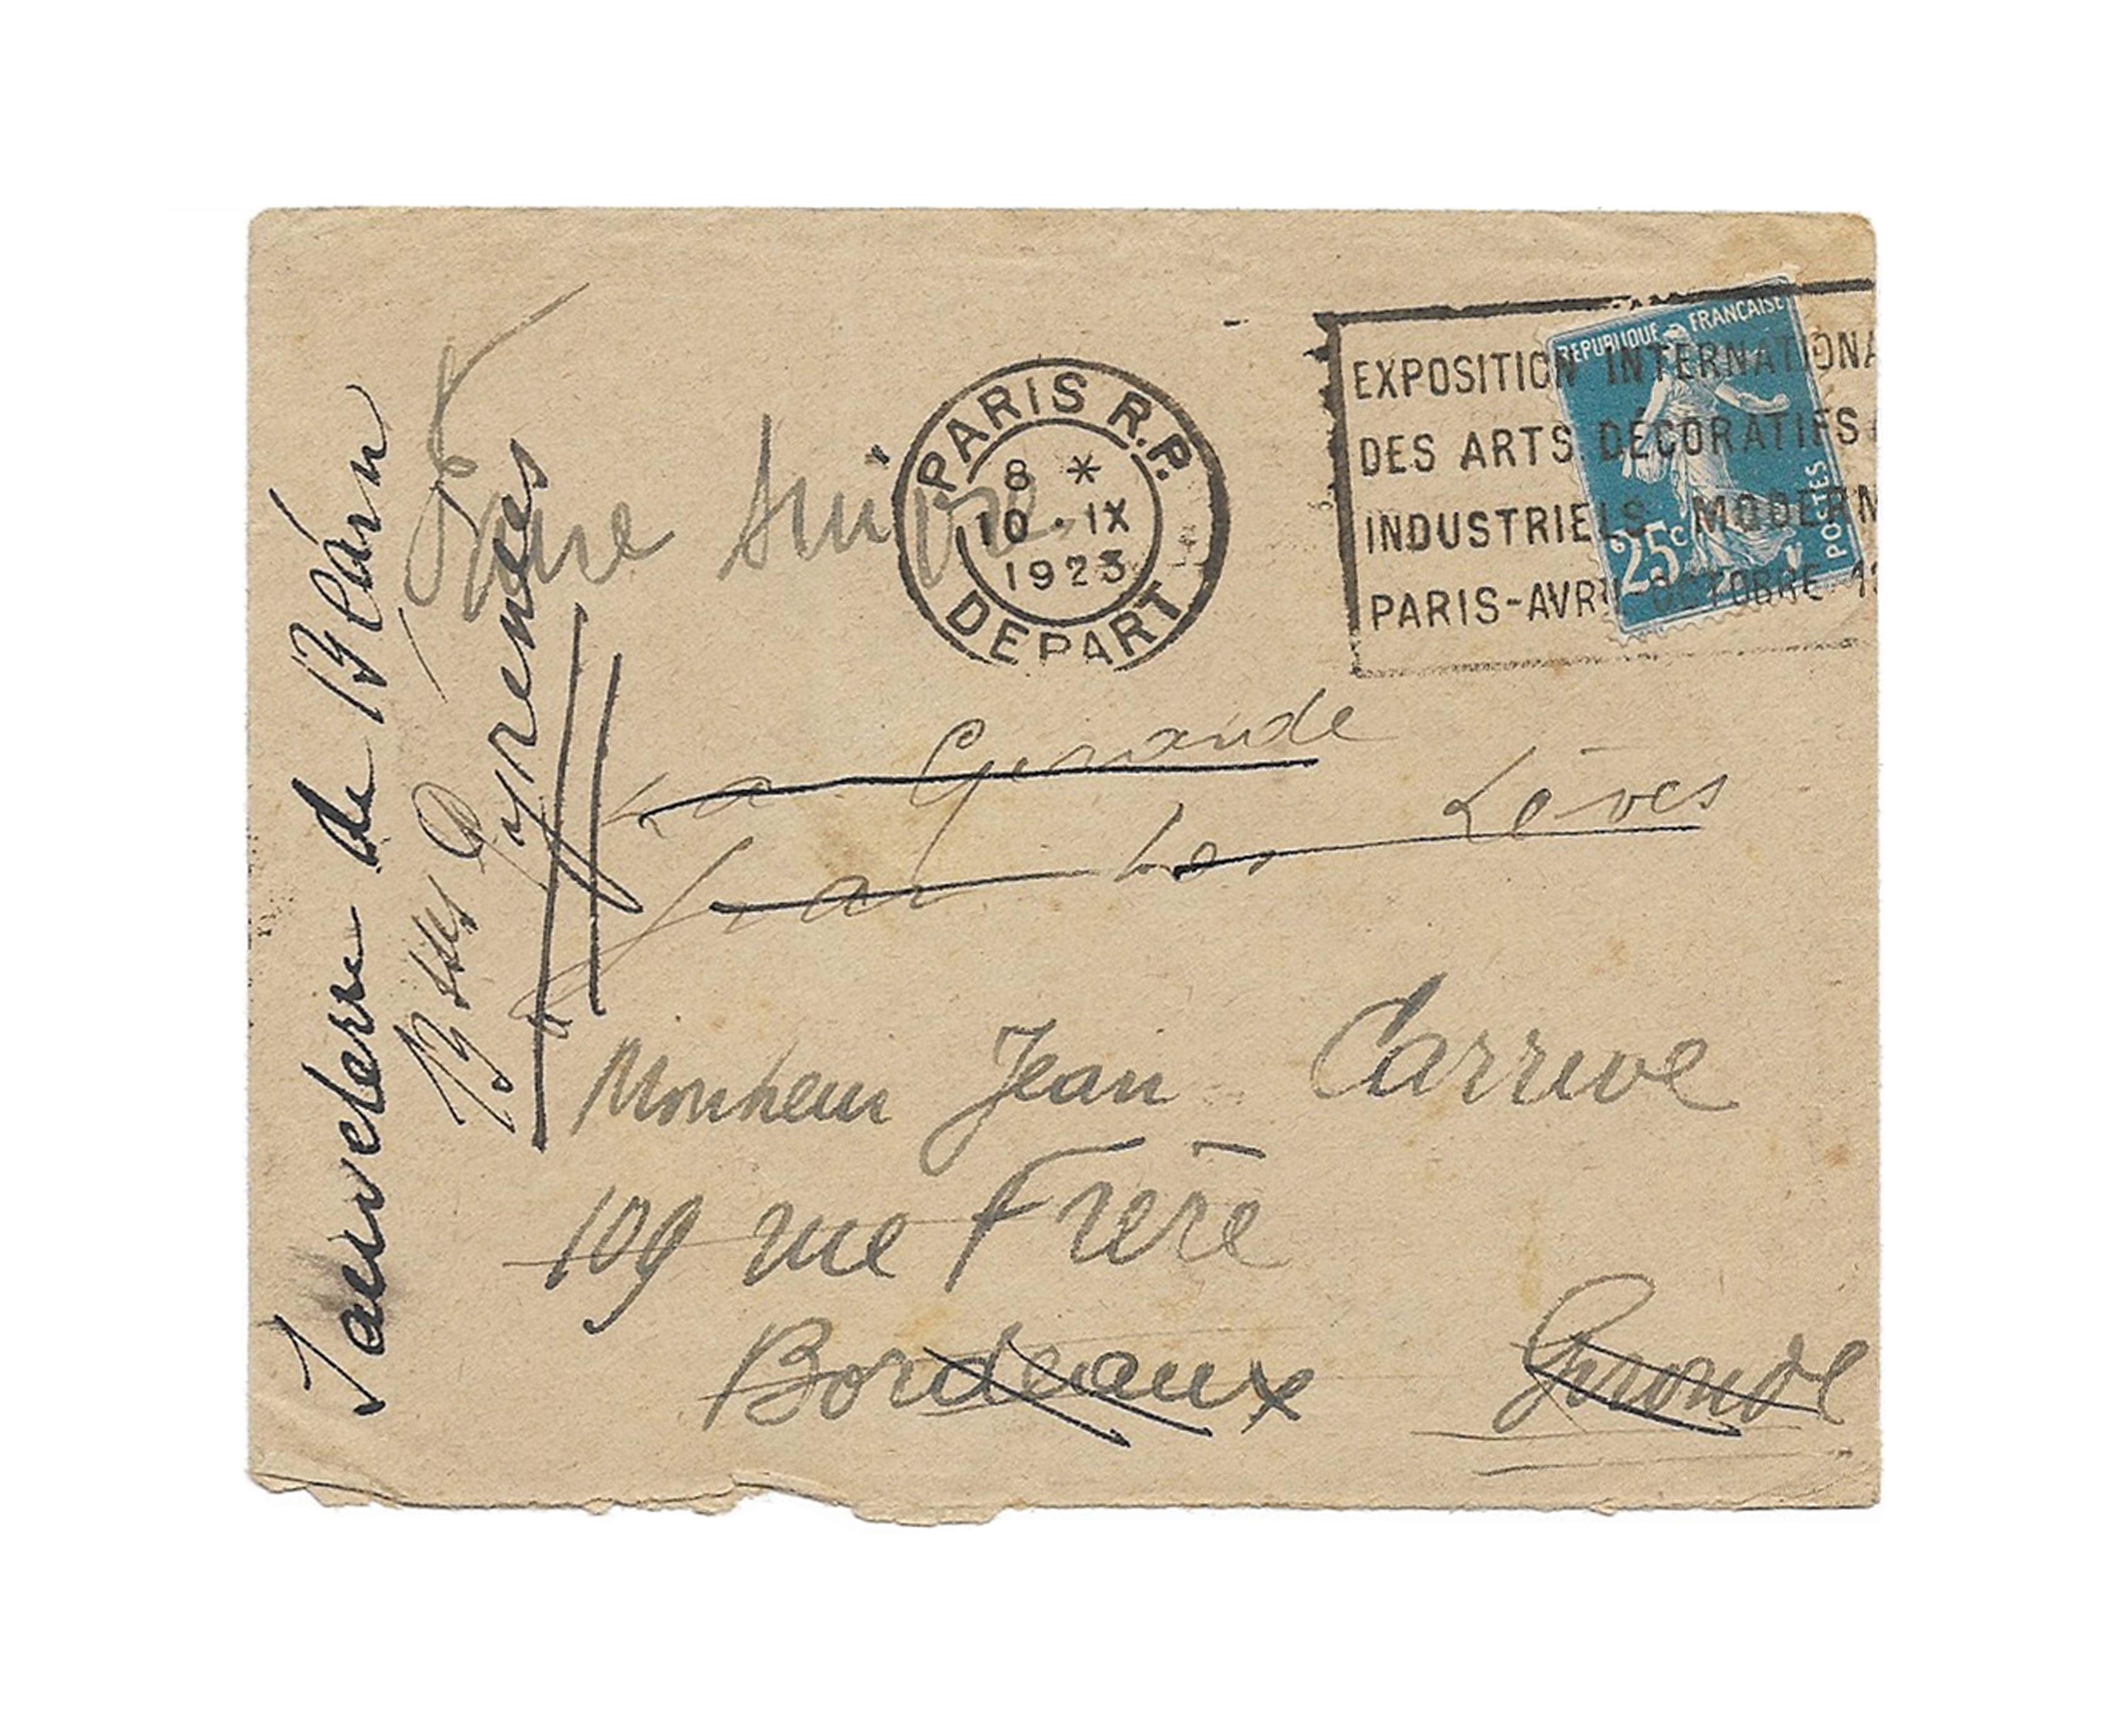 Faire suivre
PARIS R.P.
8 *
10 · IX
1923
DEPART
EXPOSITION INTERNATIONA
DES ARTS DÉCORATIFS
INDUSTRIELS MODERN
PARIS-AVRIL OCTOBRE 19
REPUBLIQUE FRANÇAISE
25c
POSTES
La Gironde
par les Lèves
Monsieur Jean Carrive
109 rue Frère
Bordeaux Gironde
Sauveterre de Béarn
Bsses Pyrenées